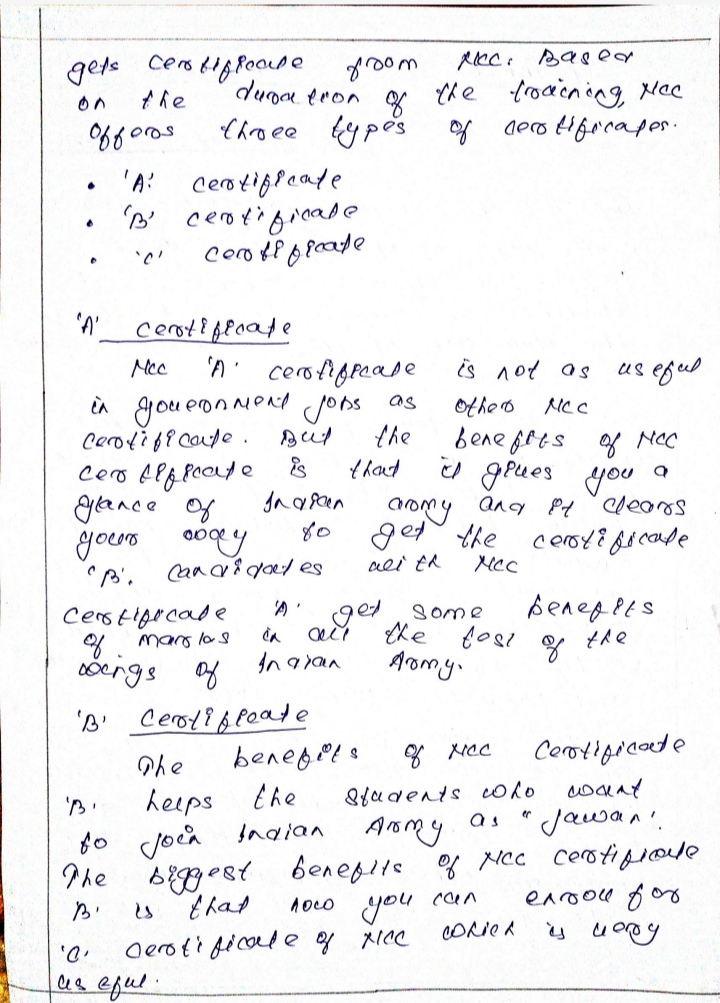 gets certificate from NCC. Based
on the duration of the training, NCC
offers three types of certificates.
• 'A' certificate
• 'B' certificate
• 'C' certificate
'A' certificate
NCC 'A' certificate is not as useful
in government jobs as other NCC
certificate. But the benefits of NCC
certificate is that it gives you a
glance of Indian army and it clears
your way to get the certificate
'B'. Candidates with NCC
Certificate 'A' get some benefits
of marks in all the test of the
wings of Indian Army.
'B' Certificate
The benefits of NCC Certificate
'B' helps the students who want
to join Indian Army as "Jawan'.
The biggest benefits of NCC certificate
B' is that now you can enroll for
'C' certificate of NCC which is very
useful.